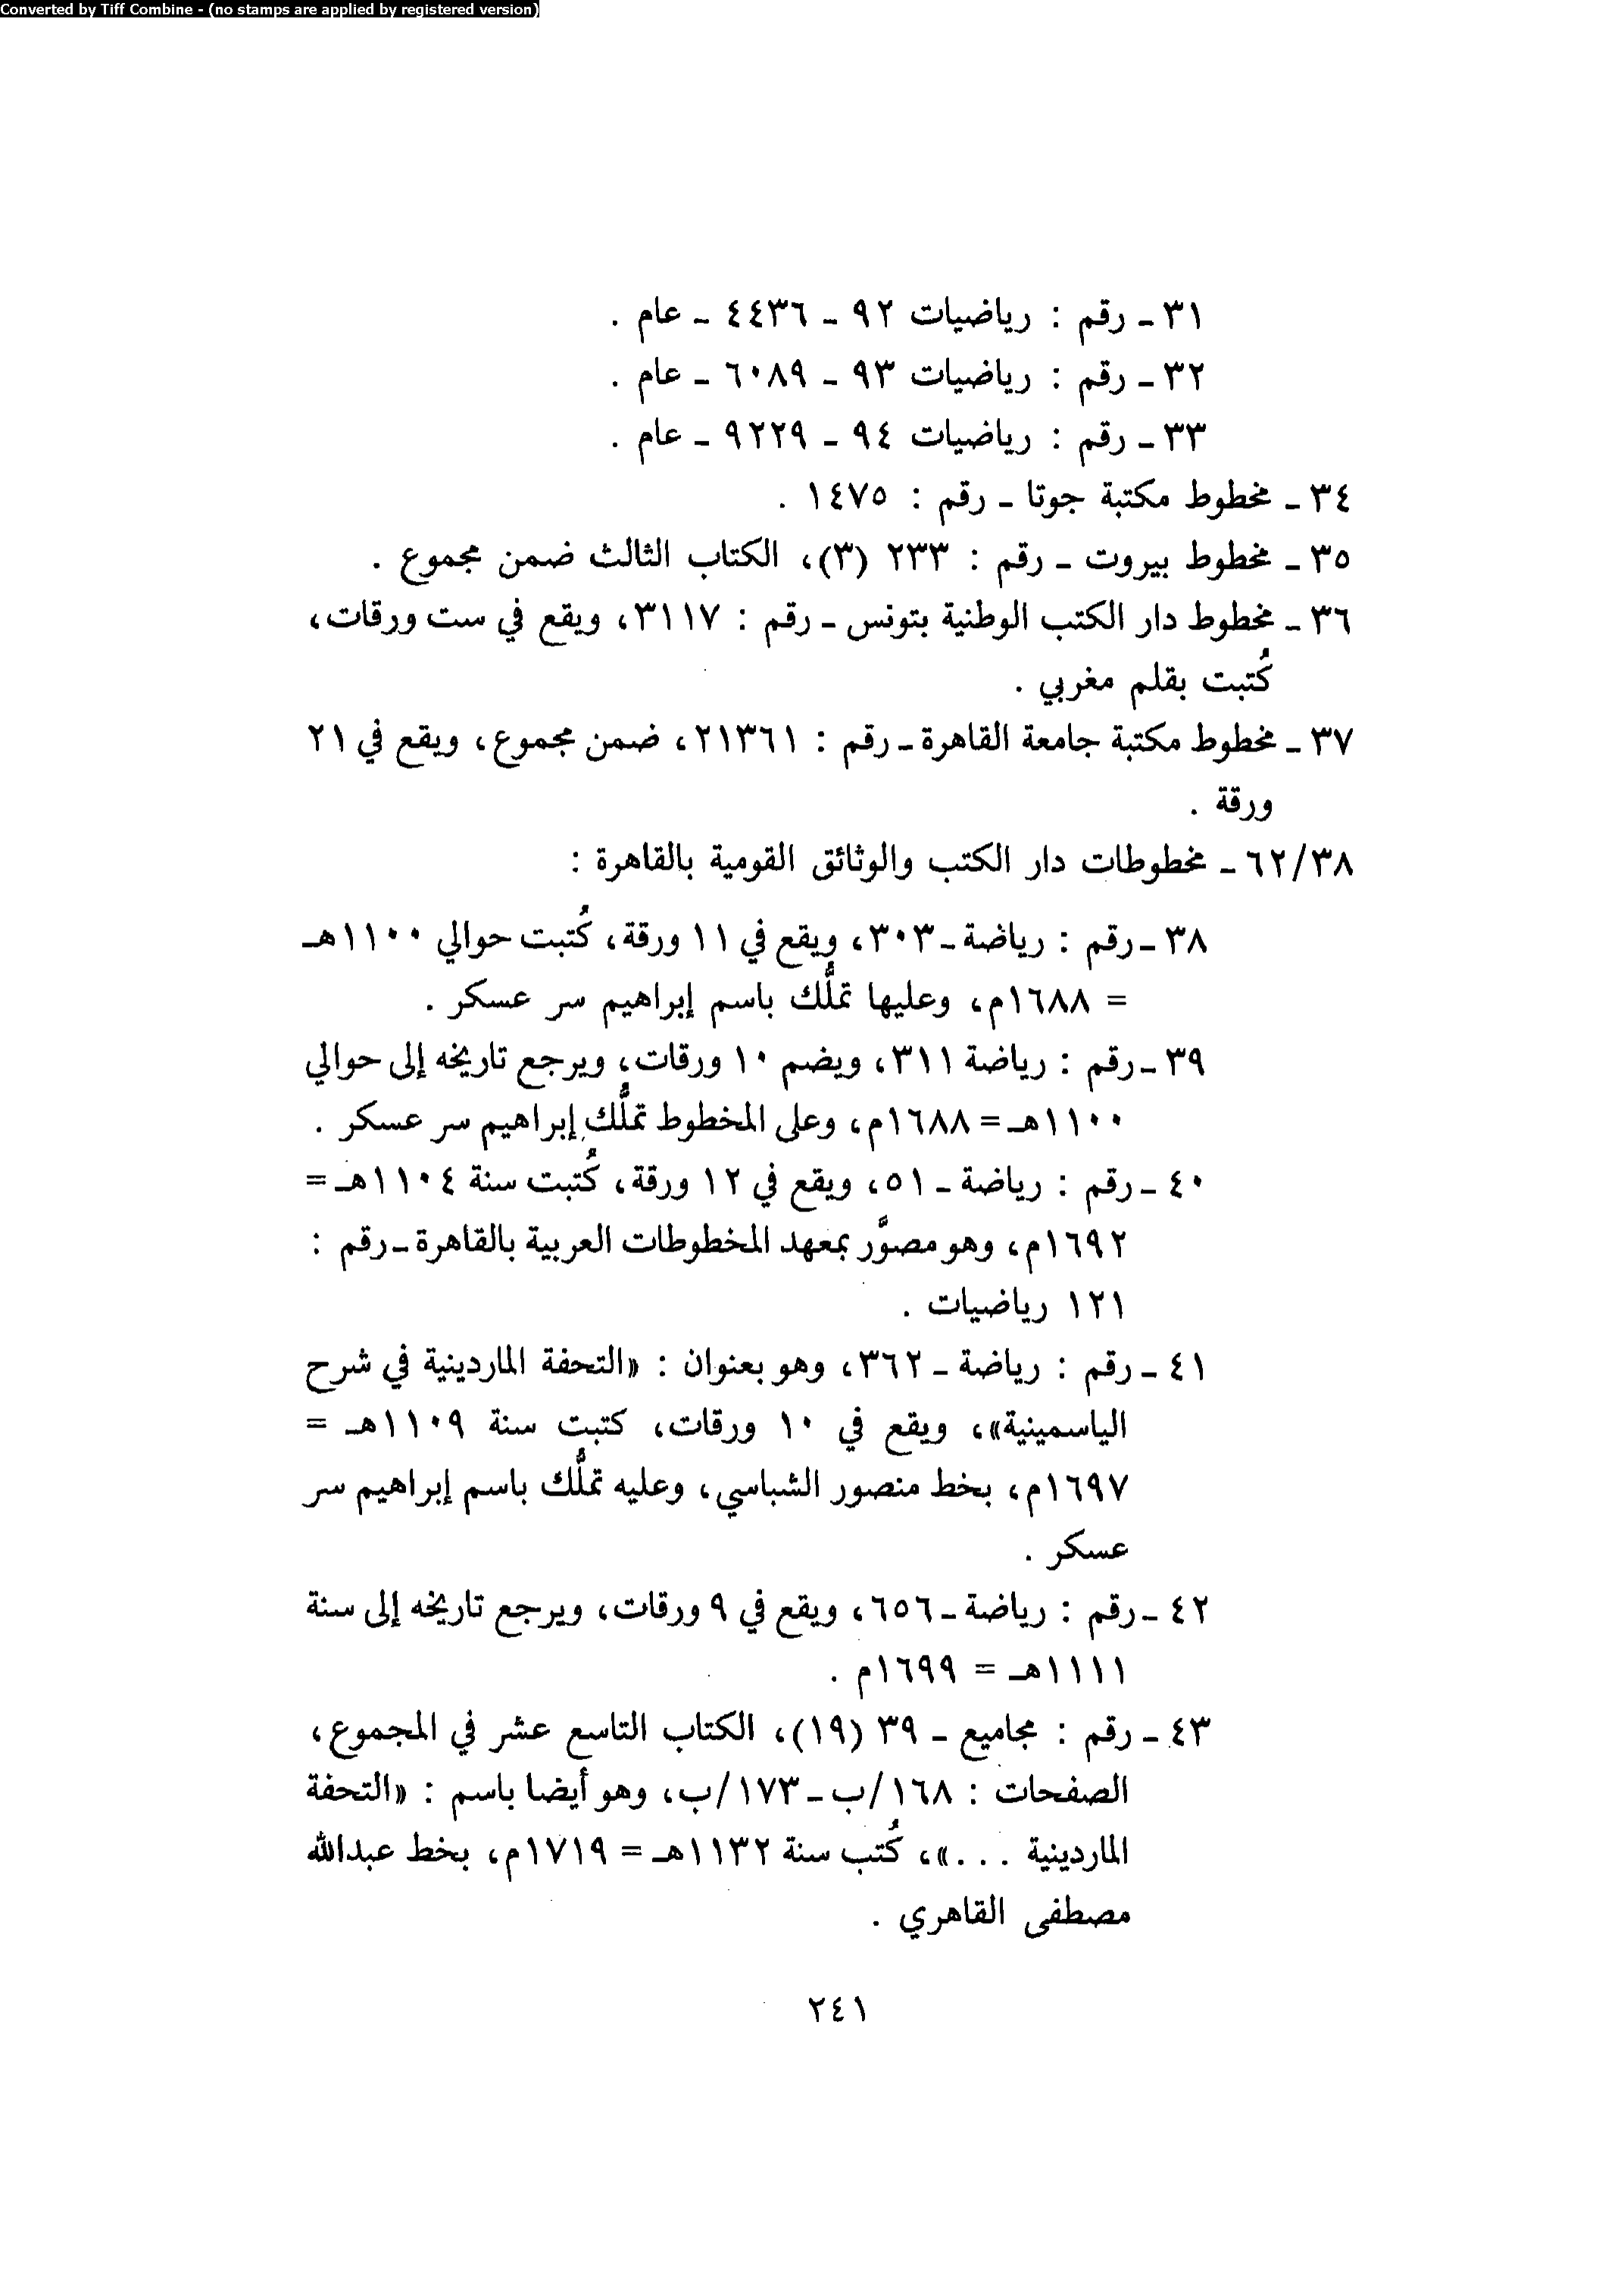 Converted by Tiff Combine - (no stamps are applied by registered version)
٣١ ـ رقم : رياضيات ٩٢ ـ ٤٤٣٦ ـ عام .
٣٢ ـ رقم : رياضيات ٩٣ ـ ٦٠٨٩ ـ عام .
٣٣ ـ رقم : رياضيات ٩٤ ـ ٩٢٢٩ ـ عام .
٣٤ ـ مخطوط مكتبة جوتا ـ رقم : ١٤٧٥ .
٣٥ ـ مخطوط بيروت ـ رقم : ٢٣٣ (٣)، الكتاب الثالث ضمن مجموع .
٣٦ ـ مخطوط دار الكتب الوطنية بتونس ـ رقم : ٣١١٧، ويقع في ست ورقات،
كُتبت بقلم مغربي .
٣٧ ـ مخطوط مكتبة جامعة القاهرة ـ رقم : ٢١٣٦١، ضمن مجموع، ويقع في ٢١
ورقة .
٦٢/٣٨ ـ مخطوطات دار الكتب والوثائق القومية بالقاهرة :
٣٨ ـ رقم : رياضة ـ ٣٠٣، ويقع في ١١ ورقة، كُتبت حوالي ١١٠٠هـ
= ١٦٨٨م، وعليها تملُّك باسم إبراهيم سر عسكر .
٣٩ ـ رقم : رياضة ٣١١، ويضم ١٠ ورقات، ويرجع تاريخه إلى حوالي
١١٠٠هـ = ١٦٨٨م، وعلى المخطوط تملُّك إبراهيم سر عسكر .
٤٠ ـ رقم : رياضة ـ ٥١، ويقع في ١٢ ورقة، كُتبت سنة ١١٠٤هـ =
١٦٩٢م، وهو مصوَّر بمعهد المخطوطات العربية بالقاهرة ـ رقم :
١٢١ رياضيات .
٤١ ـ رقم : رياضة ـ ٣٦٢، وهو بعنوان : «التحفة الماردينية في شرح
الياسمينية»، ويقع في ١٠ ورقات، كتبت سنة ١١٠٩هـ =
١٦٩٧م، بخط منصور الشباسي، وعليه تملُّك باسم إبراهيم سر
عسكر .
٤٢ ـ رقم : رياضة ـ ٦٥٦، ويقع في ٩ ورقات، ويرجع تاريخه إلى سنة
١١١١هـ = ١٦٩٩م .
٤٣ ـ رقم : مجاميع ـ ٣٩ (١٩)، الكتاب التاسع عشر في المجموع،
الصفحات : ١٦٨/ب ـ ١٧٣/ب، وهو أيضا باسم : «التحفة
الماردينية . . .»، كُتب سنة ١١٣٢هـ = ١٧١٩م، بخط عبدالله
مصطفى القاهري .
٢٤١